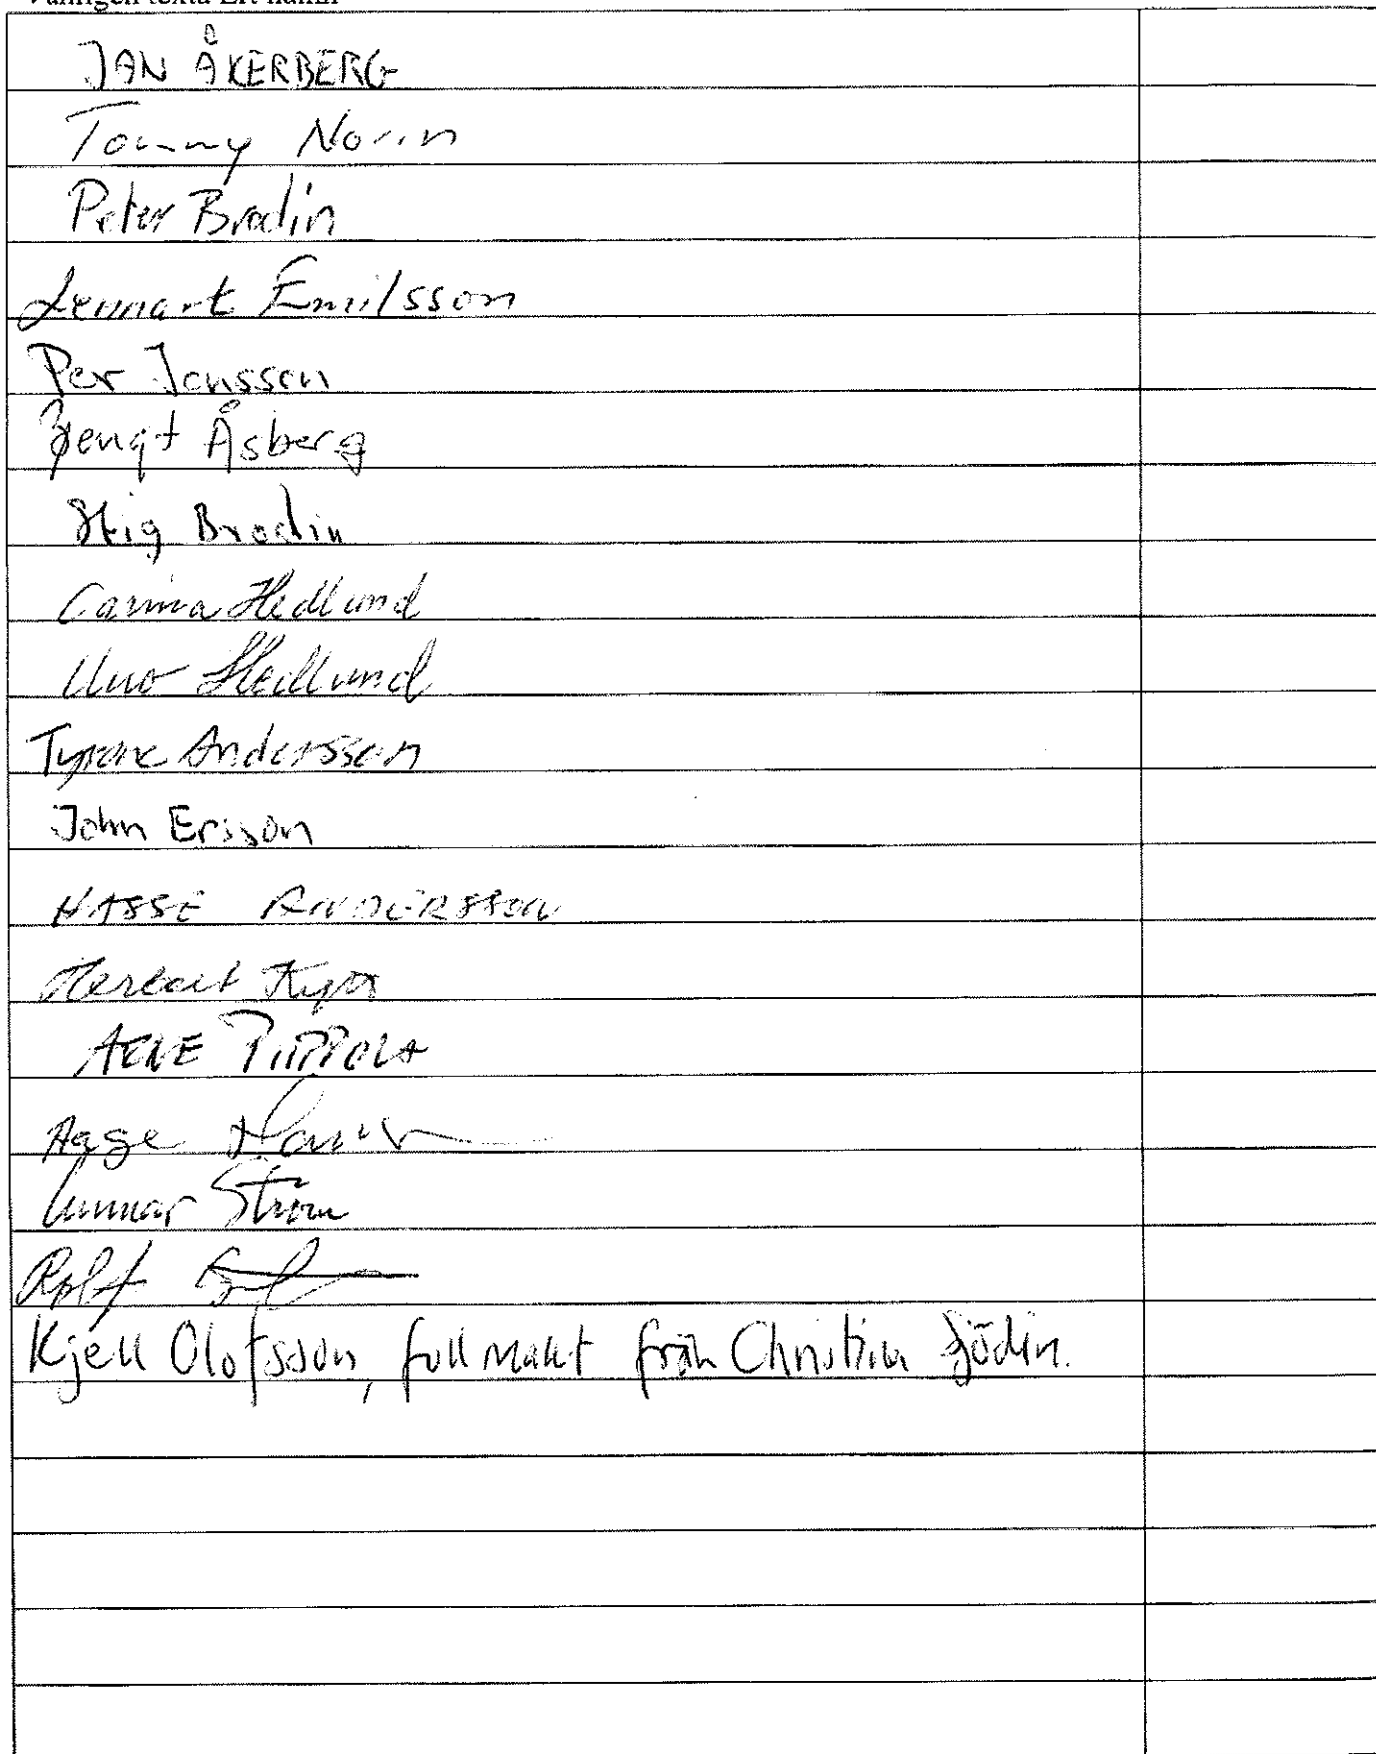 Vänligen texta Ert namn
JAN ÅKERBERG
Tommy Norin
Peter Brodin
Lennart Emilsson
Per Jonsson
Bengt Åsberg
Stig Brodin
Carina Hedlund
Uno Hedlund
Tyrone Andersson
John Ersson
HASSE ANDERSSON
Herbert
ARNE PIIPPOLA
Aage
Gunnar Ström
Rolf
Kjell Olofsson, fullmakt från Christina Sjödin.